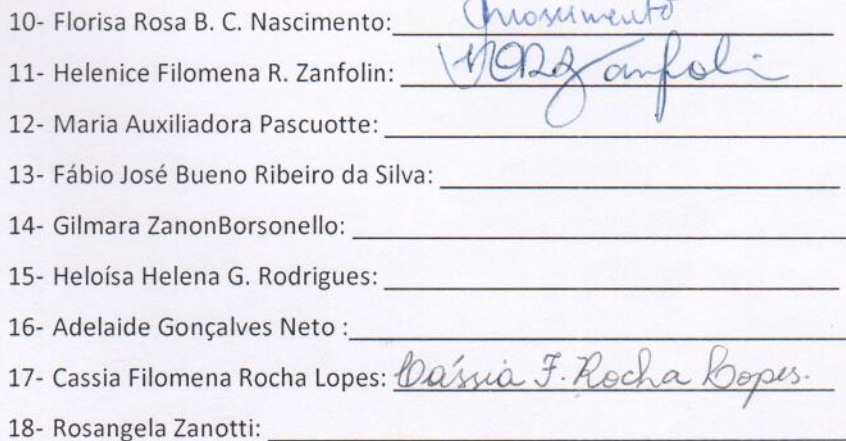 10- Florisa Rosa B. C. Nascimento: Nascimento
11- Helenice Filomena R. Zanfolin: Zanfolin
12- Maria Auxiliadora Pascuotte:
13- Fábio José Bueno Ribeiro da Silva:
14- Gilmara ZanonBorsonello:
15- Heloísa Helena G. Rodrigues:
16- Adelaide Gonçalves Neto :
17- Cassia Filomena Rocha Lopes: Cássia F. Rocha Lopes.
18- Rosangela Zanotti: